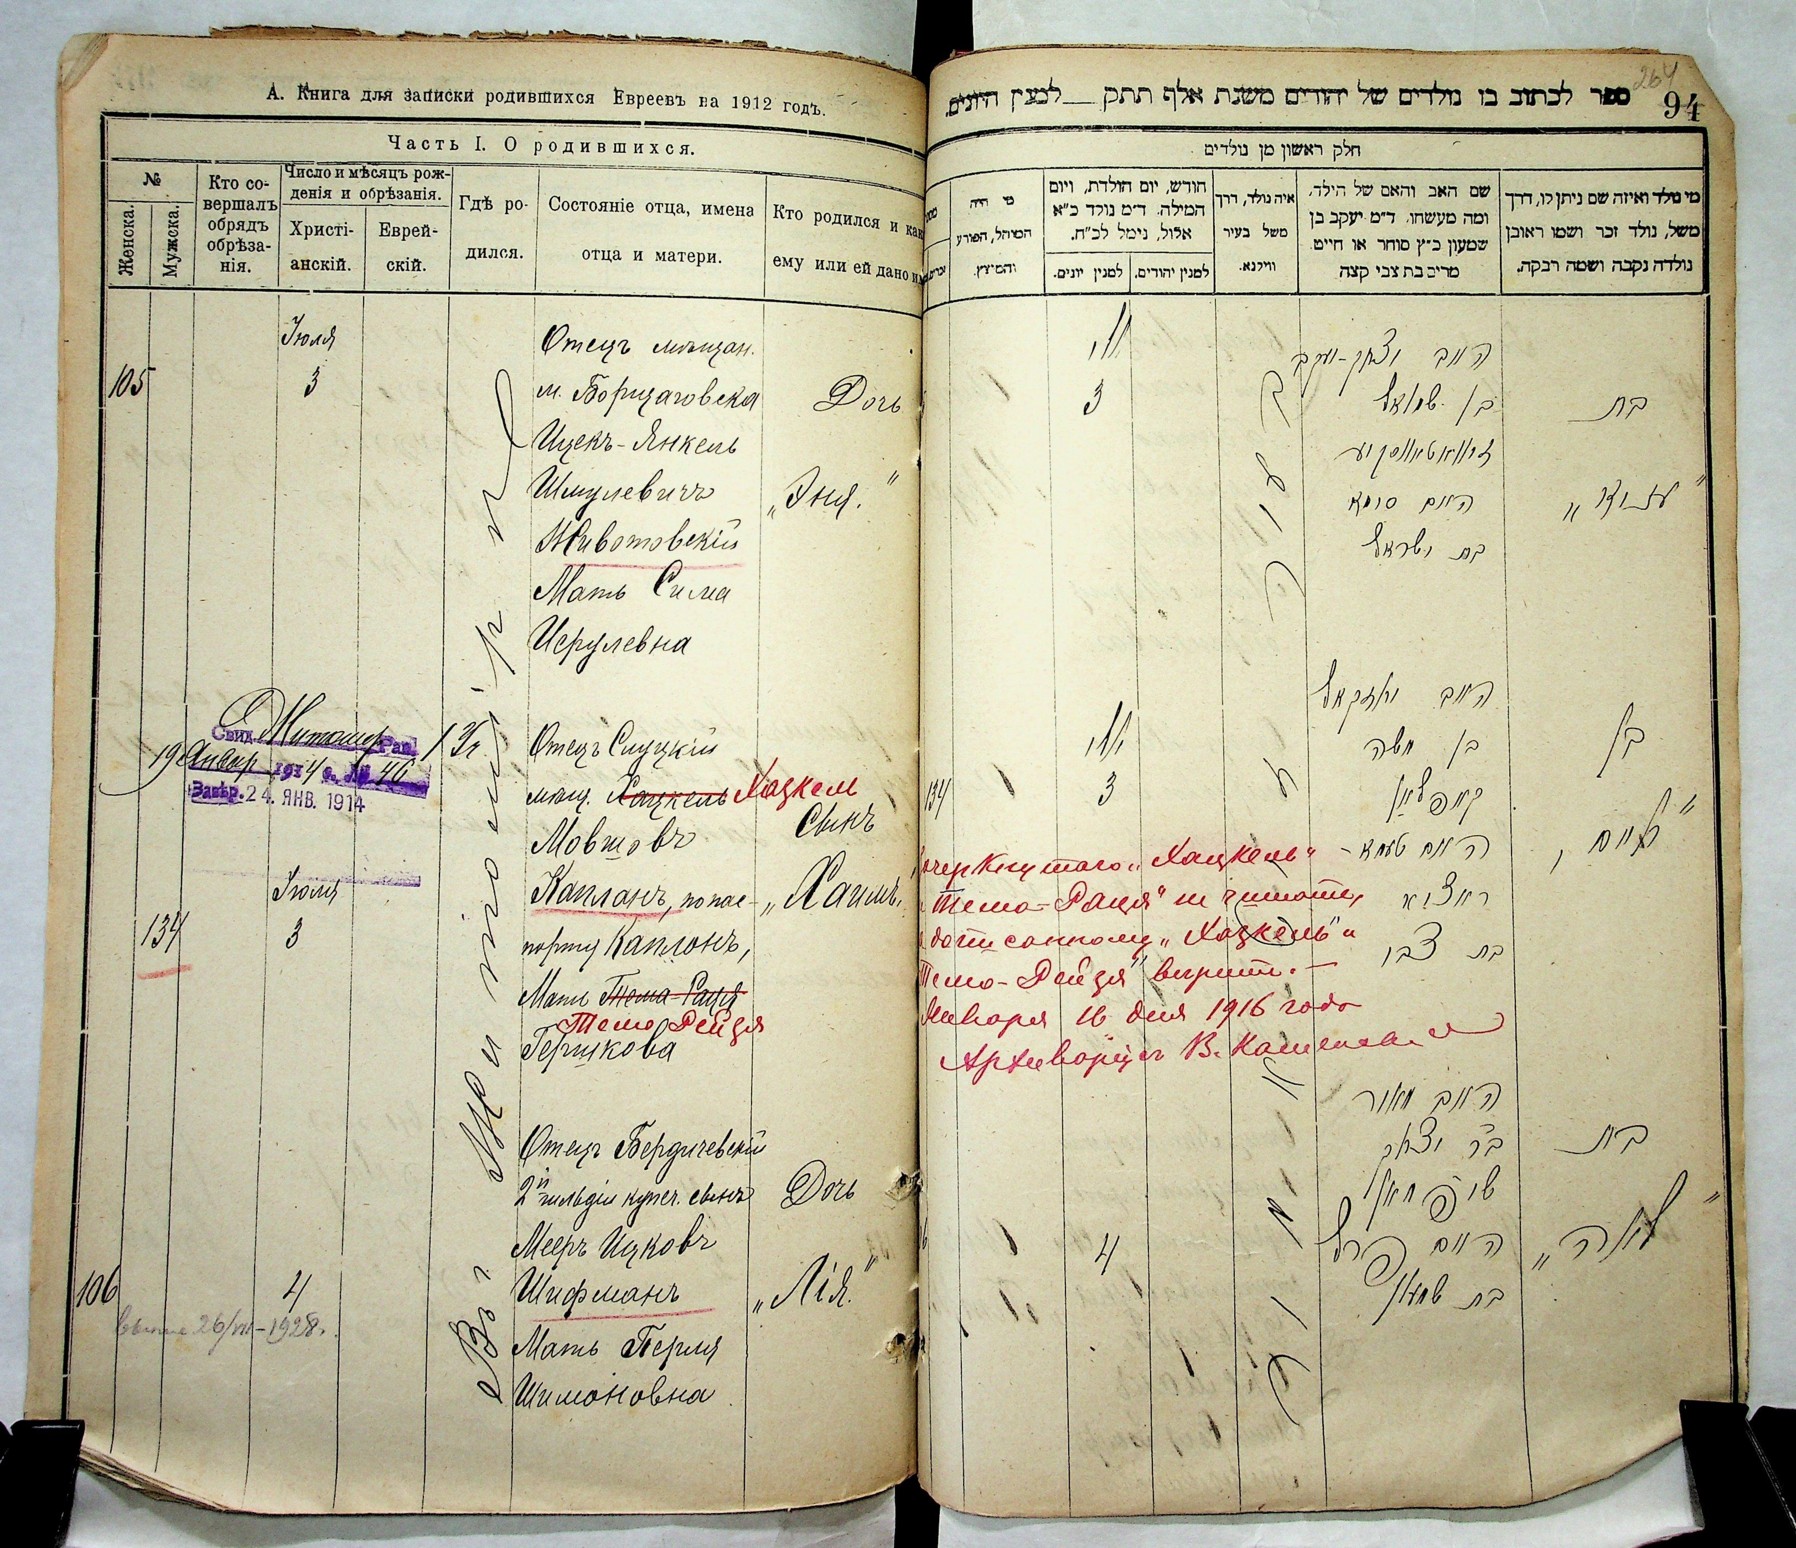 А. Книга для записки родившихся Евреевъ на 1912 годъ.
Часть I. О родившихся.
№
Женска.
Мужска.
Кто со-
вершалъ
обрядъ
обрѣза-
нія.
Число и мѣсяцъ рож-
денія и обрѣзанія.
Христі-
анскій.
Еврей-
скій.
Гдѣ ро-
дился.
Состояніе отца, имена
отца и матери.
Кто родился и как
ему или ей дано и
105
Іюля
3
Отецъ мѣщан.
м. Борщаговска
Ицекъ-Янкель
Шмулевичъ
Животовскій
Мать Сима
Исрулевна
Дочь
„Эня."
Житомир
Свид. Рав.
19 Январ 1914 г. № 46
Завѣр. 24. ЯНВ. 1914
134
Іюля
3
Отецъ Слуцкій
мѣщ. Хацкель Хацкель
Мовшовъ
Капланъ, по пас-
порту Каплонъ,
Мать Тема-Рация
Тема Рейзя
Гершкова
Сынъ
„Хаимъ."
106
4
26/VII-1928.
Отецъ Бердичевскій
2й гильдіи купеч. сынъ
Мееръ Ицковъ
Шифманъ
Мать Перля
Шимоновна
Дочь
„Лія."
Житомірѣ
264
94
ספר לכתוב בו נולדים של יהודים משנת אלף תתק למנין היונים.
חלק ראשון מן נולדים
מי היה
המוהל, הפורע
והמוצץ.
חודש, יום הולדת, ויום
המילה. ד״מ נולד כ״א
אלול, נימל לכ״ח.
למנין יונים.
למנין יהודים.
איה נולד, דרך
משל בעיר
ווילנא.
שם האב והאם של הילד.
ומה מעשהו. ד״מ יעקב בן
שמעון כ״ץ סוחר או חייט.
מרים בת צבי קצה
מי נולד ואיזה שם ניתן לו, דרך
משל, נולד זכר ושמו ראובן
נולדה נקבה ושמה רבקה.
3
האב יצחק-יעקב
בן שמואל
האם סימא
בת ישראל
בת
134
3
האב יחזקאל
בן משה
קאפלאן
האם טעמא-
בת צבי
בן
„חיים"
зачеркнутаго „Хацкель"
„Тема-Рация" не читать,
а дописанному „Хацкель" и
„Тема-Рейзя" вѣрить.—
Января 16 дня 1916 года
Архиваріусъ В.
4
האב מאיר
בר יצחק
שיפמאן
האם פערל
בת שמעון
בת
„לאה"